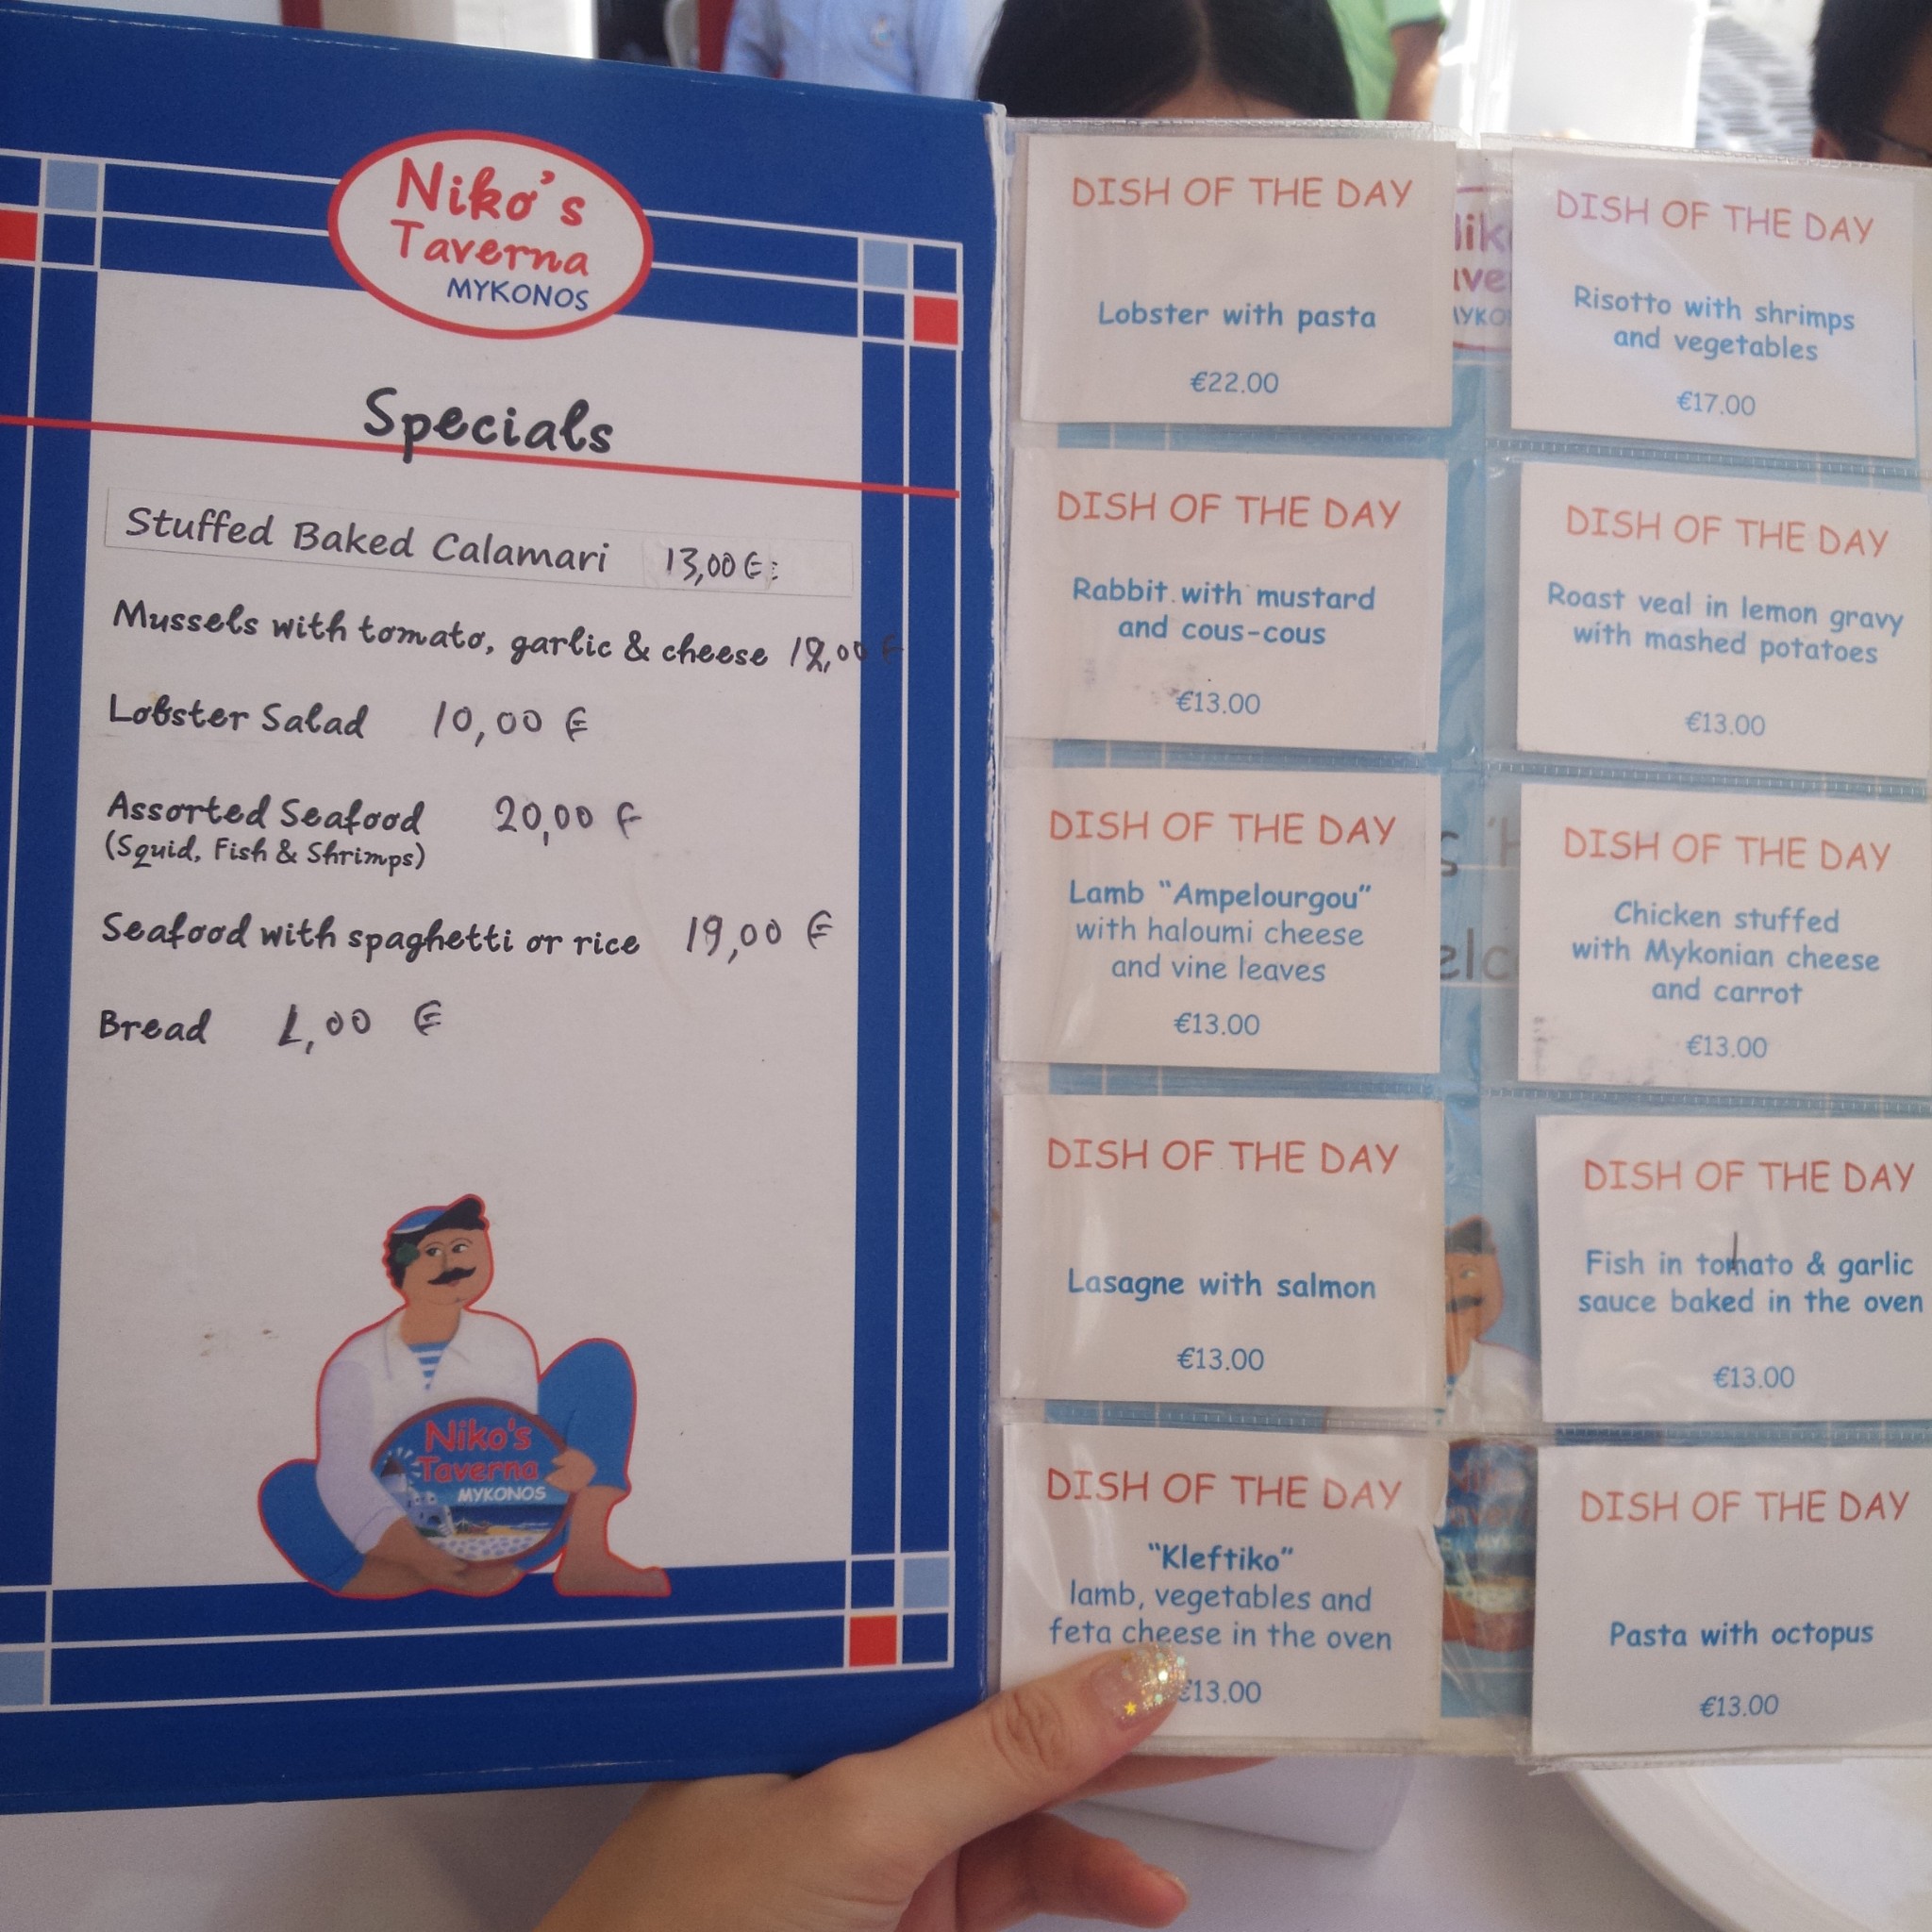 Niko's
Taverna
MYKONOS
Specials
Stuffed Baked Calamari 13,00 €
Mussels with tomato, garlic & cheese
Lobster Salad 10,00 €
Assorted Seafood 20,00 €
(Squid, Fish & Shrimps)
Seafood with spaghetti or rice 19,00 €
Bread 1,00 €
Niko's
Taverna
MYKONOS
DISH OF THE DAY
Lobster with pasta
€22.00
DISH OF THE DAY
Risotto with shrimps
and vegetables
€17.00
DISH OF THE DAY
Rabbit with mustard
and cous-cous
€13.00
DISH OF THE DAY
Roast veal in lemon gravy
with mashed potatoes
€13.00
DISH OF THE DAY
Lamb "Ampelourgou"
with haloumi cheese
and vine leaves
€13.00
DISH OF THE DAY
Chicken stuffed
with Mykonian cheese
and carrot
€13.00
DISH OF THE DAY
Lasagne with salmon
€13.00
DISH OF THE DAY
Fish in tomato & garlic
sauce baked in the oven
€13.00
DISH OF THE DAY
"Kleftiko"
lamb, vegetables and
feta cheese in the oven
€13.00
DISH OF THE DAY
Pasta with octopus
€13.00